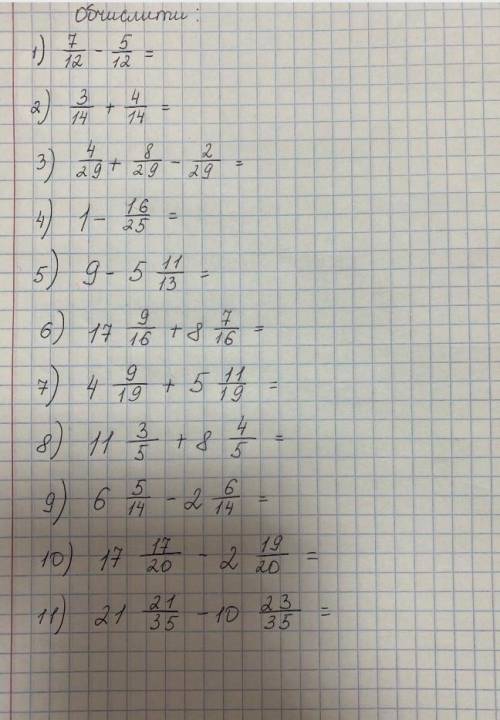 Обчислити:
1) 7/12 - 5/12 =
2) 3/14 + 4/14 =
3) 4/29 + 8/29 - 2/29 =
4) 1 - 16/25 =
5) 9 - 5 11/13 =
6) 17 9/16 + 8 7/16 =
7) 4 9/19 + 5 11/19 =
8) 11 3/5 + 8 4/5 =
9) 6 5/14 - 2 6/14 =
10) 17 17/20 - 2 19/20 =
11) 21 21/35 - 10 23/35 =